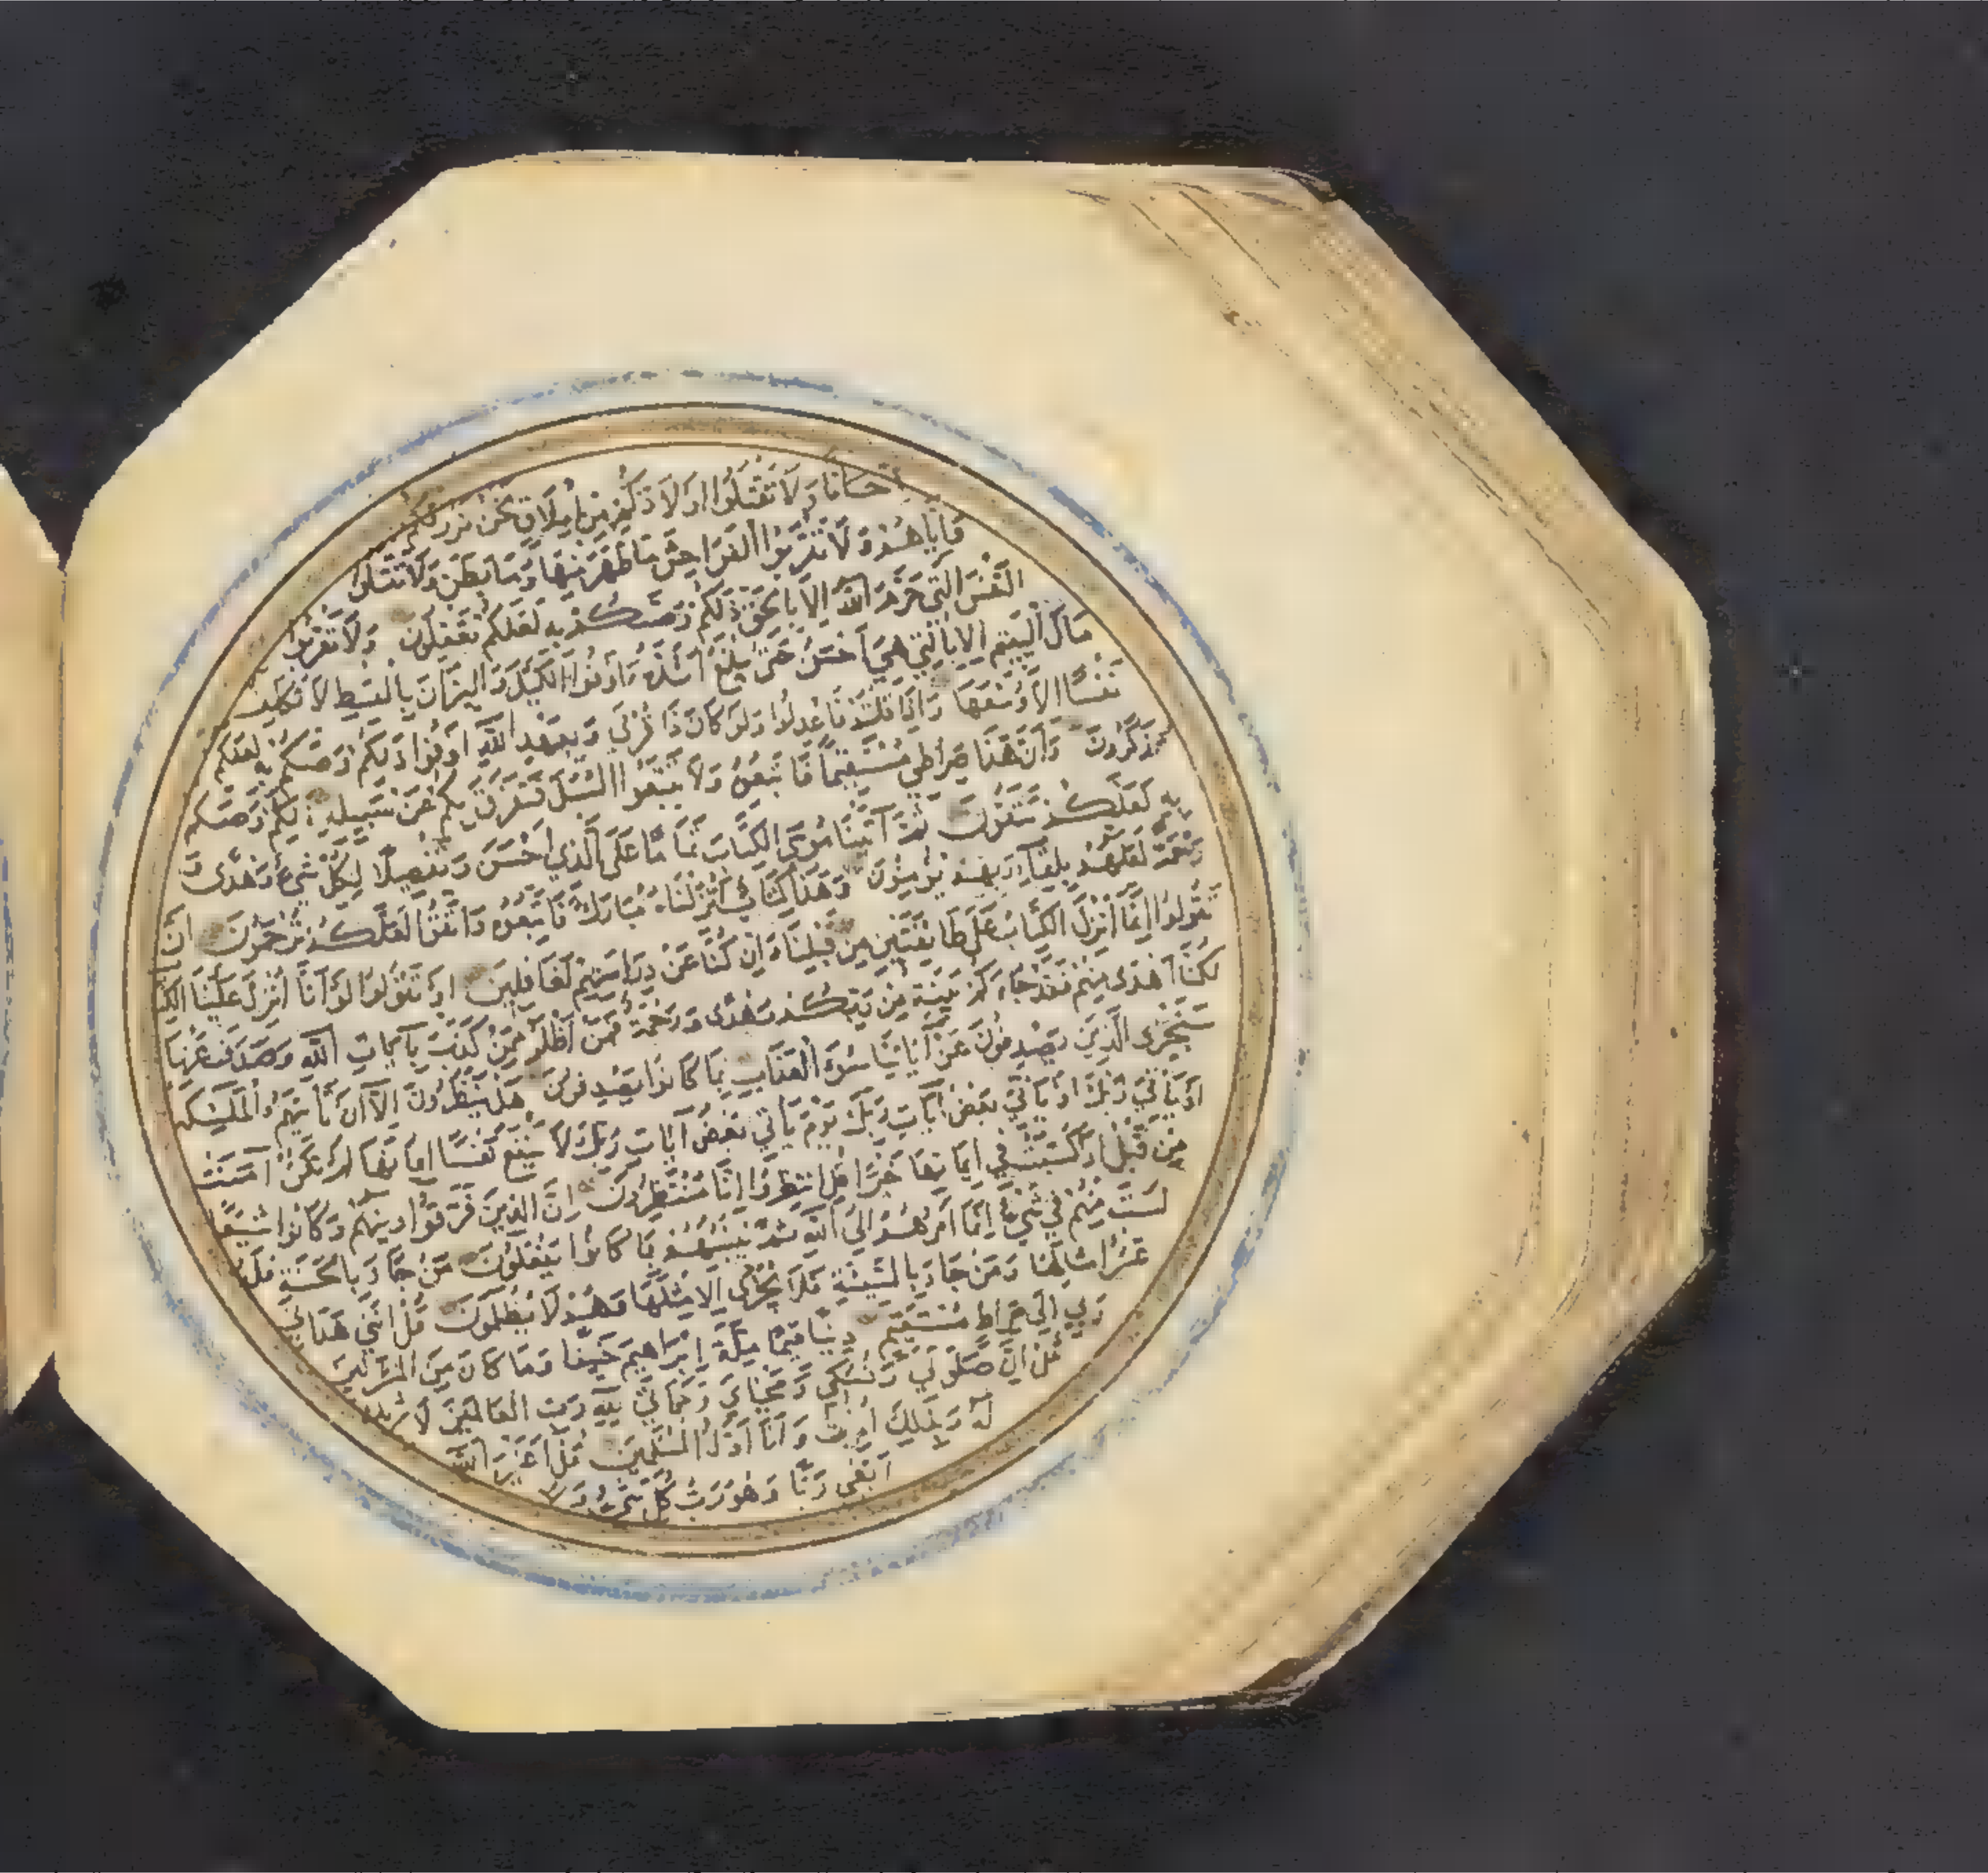 احسانا ولا تقتلوا اولادكم من املاق نحن نرزقكم
واياهم ولا تقربوا الفواحش ما ظهر منها وما بطن ولا تقتلوا
النفس التي حرم الله الا بالحق ذلكم وصيكم به لعلكم تعقلون ولا تقربوا
مال اليتيم الا بالتي هي احسن حتى يبلغ اشده واوفوا الكيل والميزان بالقسط لا نكلف
نفسا الا وسعها واذا قلتم فاعدلوا ولو كان ذا قربى وبعهد الله اوفوا ذلكم وصيكم به لعلكم
تذكرون وان هذا صراطي مستقيما فاتبعوه ولا تتبعوا السبل فتفرق بكم عن سبيله ذلكم وصيكم
به لعلكم تتقون ثم آتينا موسى الكتاب تماما على الذي احسن وتفصيلا لكل شيء وهدى و
رحمة لعلهم بلقاء ربهم يؤمنون وهذا كتاب انزلناه مبارك فاتبعوه واتقوا لعلكم ترحمون ان
تقولوا انما انزل الكتاب على طائفتين من قبلنا وان كنا عن دراستهم لغافلين او تقولوا لو انا انزل علينا الكتاب
لكنا اهدى منهم فقد جاءكم بينة من ربكم وهدى ورحمة فمن اظلم ممن كذب بآيات الله وصدف عنها
سنجزي الذين يصدفون عن آياتنا سوء العذاب بما كانوا يصدفون هل ينظرون الا ان تأتيهم الملئكة
او يأتي ربك او يأتي بعض آيات ربك يوم يأتي بعض آيات ربك لا ينفع نفسا ايمانها لم تكن آمنت
من قبل او كسبت في ايمانها خيرا قل انتظروا انا منتظرون ان الذين فرقوا دينهم وكانوا شيعا
لست منهم في شيء انما امرهم الى الله ثم ينبئهم بما كانوا يفعلون من جاء بالحسنة فله
عشر امثالها ومن جاء بالسيئة فلا يجزى الا مثلها وهم لا يظلمون قل انني هداني
ربي الى صراط مستقيم دينا قيما ملة ابراهيم حنيفا وما كان من المشركين
قل ان صلوتي ونسكي ومحياي ومماتي لله رب العالمين لا شريك
له وبذلك امرت وانا اول المسلمين قل اغير الله
ابغي ربا وهو رب كل شيء ولا